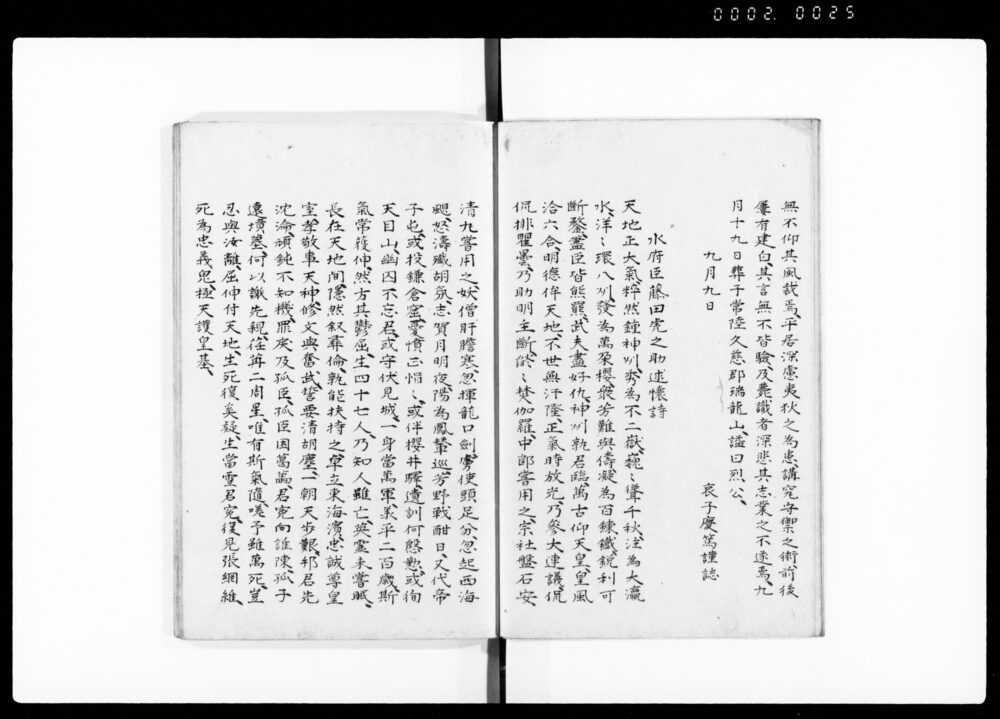 0002.0025
無不仰其風哉焉、平居深慮夷狄之為患、講究守禦之術、前後
屢有建白、其言無不皆驗、及薨、識者深悲其志業之不遂焉、九
月十九日葬于常陸久慈郡瑞龍山、謚曰烈公、
九月九日　哀子慶篤謹誌
水府臣藤田虎之助述懷詩
天地正大氣、粹然鍾神州、秀為不二嶽、巍〻聳千秋、注為大瀛
水、洋〻環八州、發為萬朶櫻、衆芳難與儔、凝為百鍊鐵、銳利可
斷鍪、藎臣皆熊羆、武夫盡好仇、神州孰君臨、萬古仰天皇、皇風
洽六合、明德侔天地、不世無汙隆、正氣時放光、乃參大連議、侃
侃排瞿曇、乃助明主斷、燄〻焚伽羅、中郎嘗用之、宗社盤石安、
清丸嘗用之、妖僧肝膽寒、忽揮龍口劍、虜使頭足分、忽起西海
颶、怒濤殲胡氛、志賀月明夜、陽為鳳輦巡、芳野戰酣日、又代帝
子屯、或投鎌倉窟、憂憤正悁〻、或伴櫻井驛、遺訓何慇懃、或徇
天目山、幽囚不忘君、或守伏見城、一身當萬軍、羙平二百歲、斯
氣常獲伸、然方其鬱屈、生四十七人、乃知人雖亡、英靈未嘗泯、
長在天地間、隱然叙彝倫、孰能扶持之、卓立東海濱、忠誠尊皇
室、孝敬事天神、修文與奮武、誓要清胡塵、一朝天步艱、邦君先
沈淪、頑鈍不知機、罪戾及孤臣、孤臣困葛藟、君冤向誰陳、孤子
遠墳墓、何以謝先親、荏苒二周星、唯有斯氣隨、嗟予雖萬死、豈
忍與汝離、屈伸付天地、生死復奚疑、生當雪君冤、復見張綱維、
死為忠義鬼、極天護皇基、